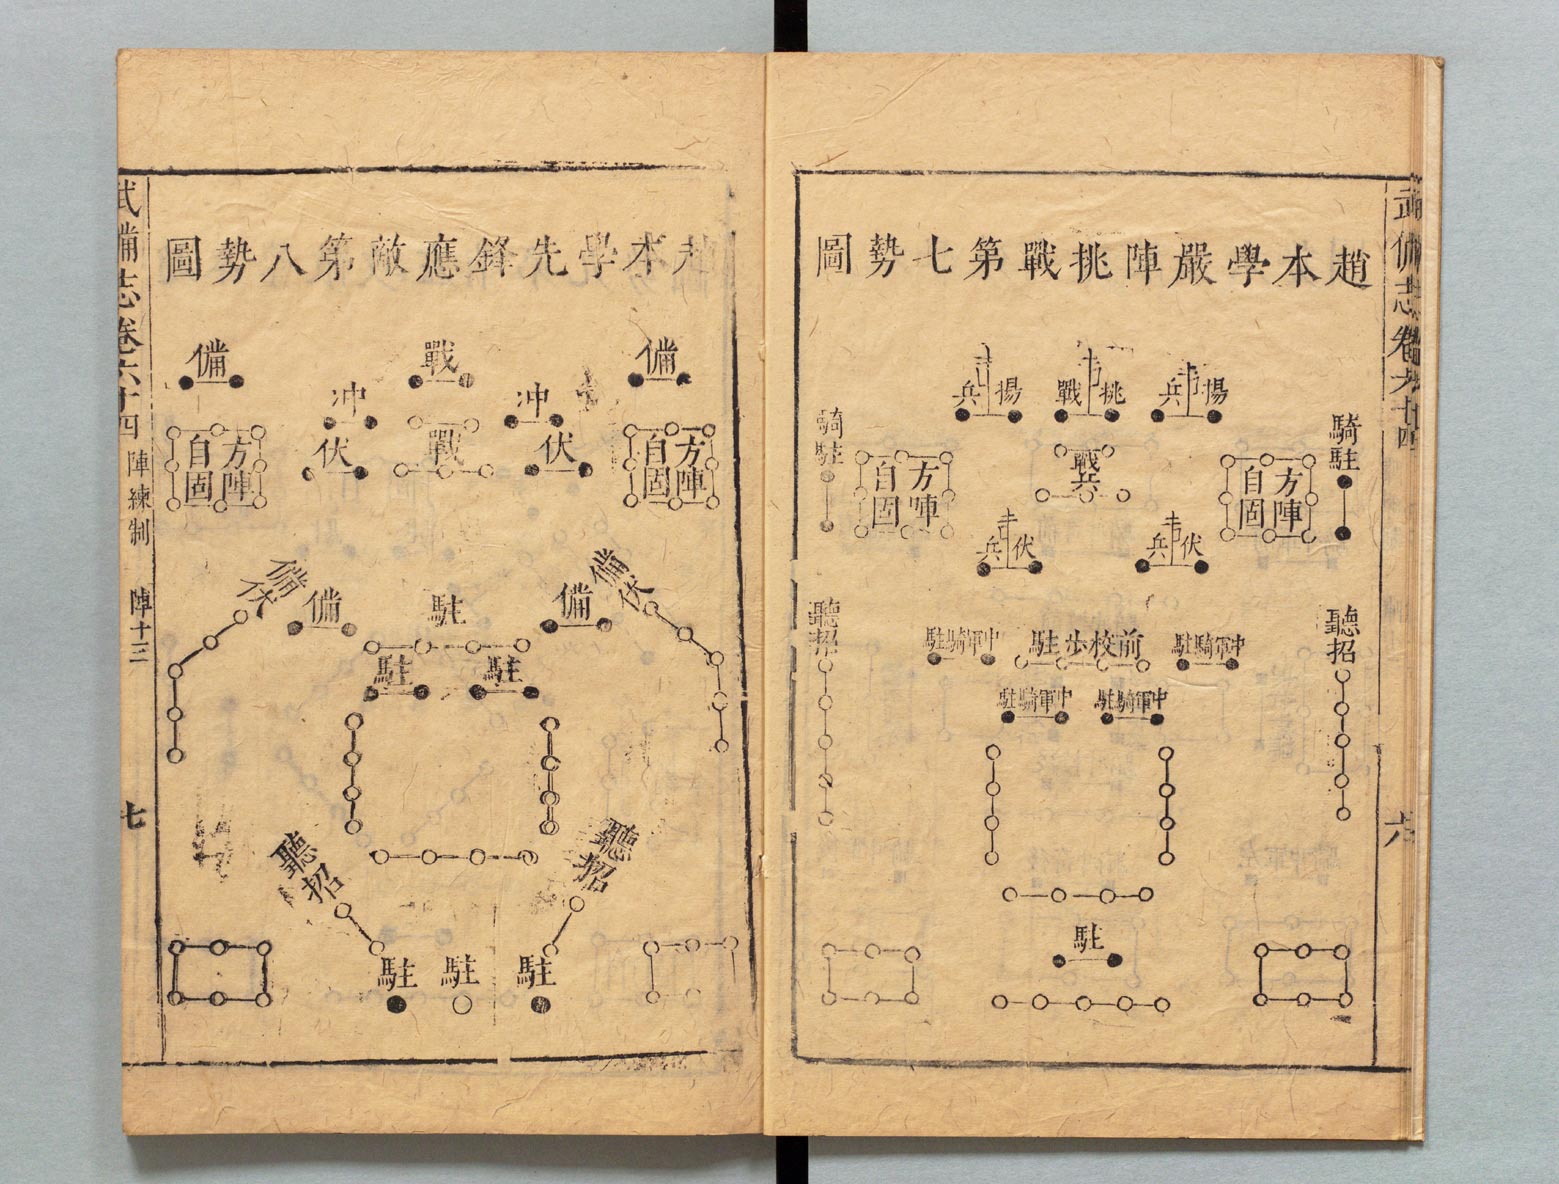 趙本學嚴陣挑戰第七勢圖
揚兵
挑戰
揚兵
騎駐
騎駐
方陣自固
戰兵
方陣自固
伏兵
伏兵
聽招
聽招
中軍騎駐
前校步駐
中軍騎駐
中軍騎駐
中軍騎駐
駐
六
趙本學先鋒應敵第八勢圖
備
戰
備
冲
冲
方陣自固
伏
戰
伏
方陣自固
備伏
備
駐
備
備伏
駐
駐
聽招
聽招
駐
駐
駐
武備志卷六十四
陣練制
陣十三
七